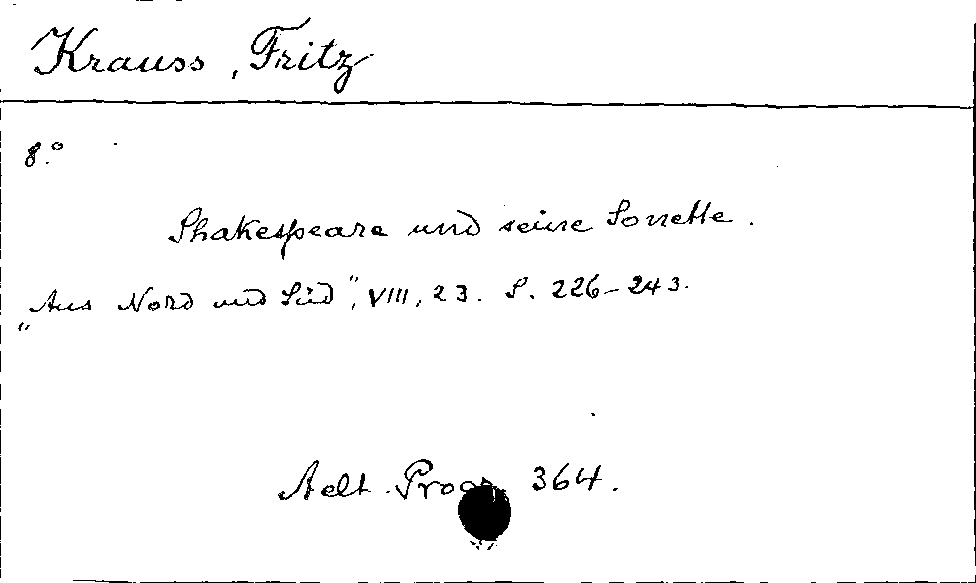 Krauss, Fritz
8.°
Shakespeare und seine Sonette.
„Aus Nord und Süd", VIII, 23. S. 226–243.
Aelt. Progr. 364.